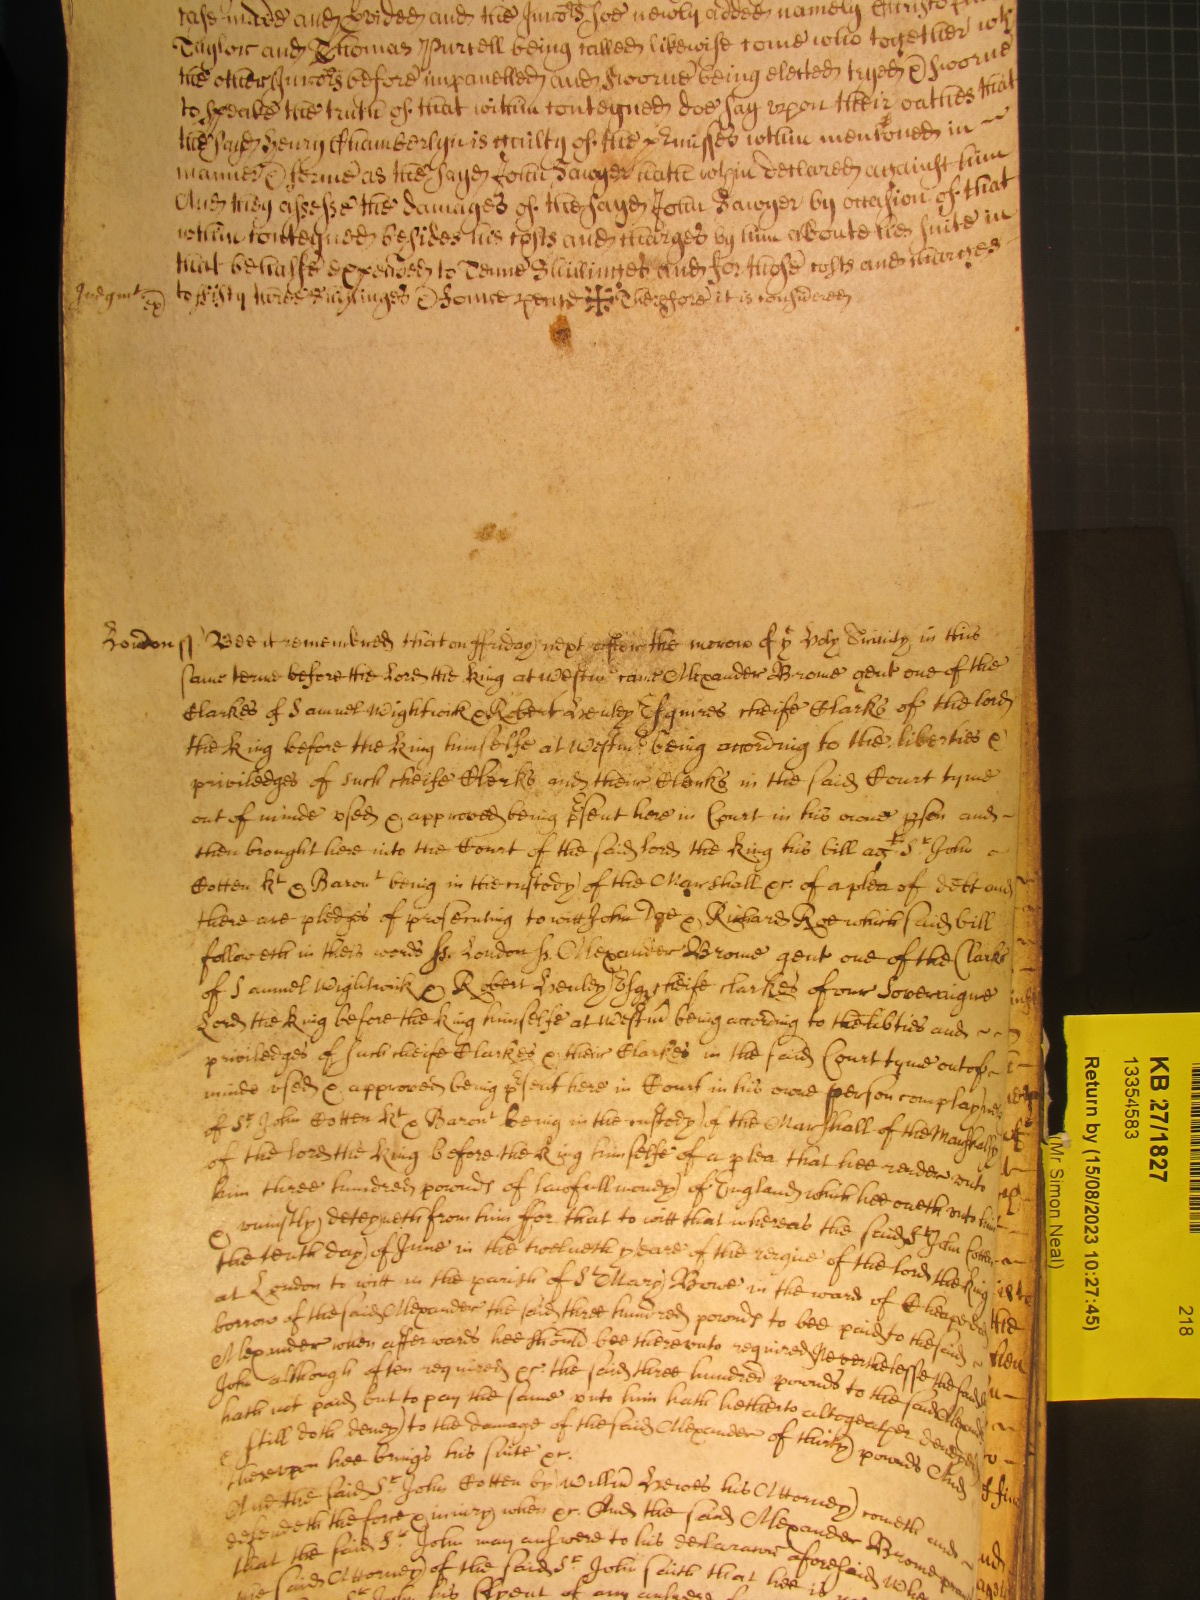 case made and pvided and the Jurors soe newly added namely
Taylor and Thomas Purcell being called likewise come who together wth
the other Jurors before impanelled and sworne being elected tryed & sworne
to speake the truth of that within conteyned doe say vpon their oathes that
the sayd Henry Chamberlyn is guilty of the pmisses within menconed in
manner & forme as the sayd John Sawyer hath wthin declared against him
And they assesse the damages of the sayd John Sawyer by occasion of that
within conteyned besides his costs and charges by him aboute his suite in
that behalfe expended to Tenne Shillinges And for those costs and charges
Judgmt to fifty three shillinges & foure pence Therefore it is considered
London ss Bee it remembred that on Ffriday next after the morow of ye Holy Trinity in this
same terme before the Lord the King at Westm came Alexander Brome gent one of the
Clarkes of Samuel Wightwick & Robert Henley Esquires cheife Clarks of the lord
the King before the King himselfe at Westmr being according to the liberties &
priviledges of such cheife Clerks and their Clerks in the said Court tyme
out of minde vsed & approved being psent here in Court in his owne pson and
then brought here into the Court of the said lord the King his bill agt Sr John
Cotten Kt & Baront being in the custody of the Marshall &c. of a plea of debt and
there are pledges of prosecuting to witt John Doe & Richard Roe which said bill
followeth in theis words ss. London ss. Alexander Brome gent one of the Clarks
of Samuel Wightwick & Robert Henley Esqs cheife clarkes of our Sovereigne
Lord the King before the King himselfe at Westm being according to the libties and
priviledges of such cheife Clarkes & their Clarkes in the said Court tyme out of
minde vsed & approved being psent here in Court in his owne person complayneth
of Sr John Cotten Kt & Baront being in the custody of the Marshall of the Marshalsy
of the lord the King before the King himselfe of a plea that hee render vnto
him three hundred pounds of lawfull money of England which hee oweth vnto him
& vniustly deteyneth from him for that to witt that whereas the said Sr John Cotten
the tenth day of June in the twelueth yeare of the reigne of the lord the King
at London to witt in the parish of St Mary Bowe in the ward of Cheape did
borrow of the said Alexander the said three hundred pounds to bee paid to the said
Alexander when afterwards hee should bee therevnto required Neverthelesse the said Sr
John although often required &c. the said three hundred pounds to the said Alexander
hath not paid but to pay the same vnto him hath hetherto altogeather denyed
& still doth deny to the damage of the said Alexander of thirty pounds And
therevpon hee brings his suite &c.
And the said Sr John Cotten by Willm Hewes his Attorney cometh and
defendeth the force & iniury when &c. And the said Alexander Brome
that the said Sr John may answere to his declaracon aforesaid Whe
the said Attorney of the said Sr John saith that hee is
John his Clyent of any answere
KB 27/1827
13354583
Return by (15/08/2023 10:27:45)
(Mr Simon Neal)
218